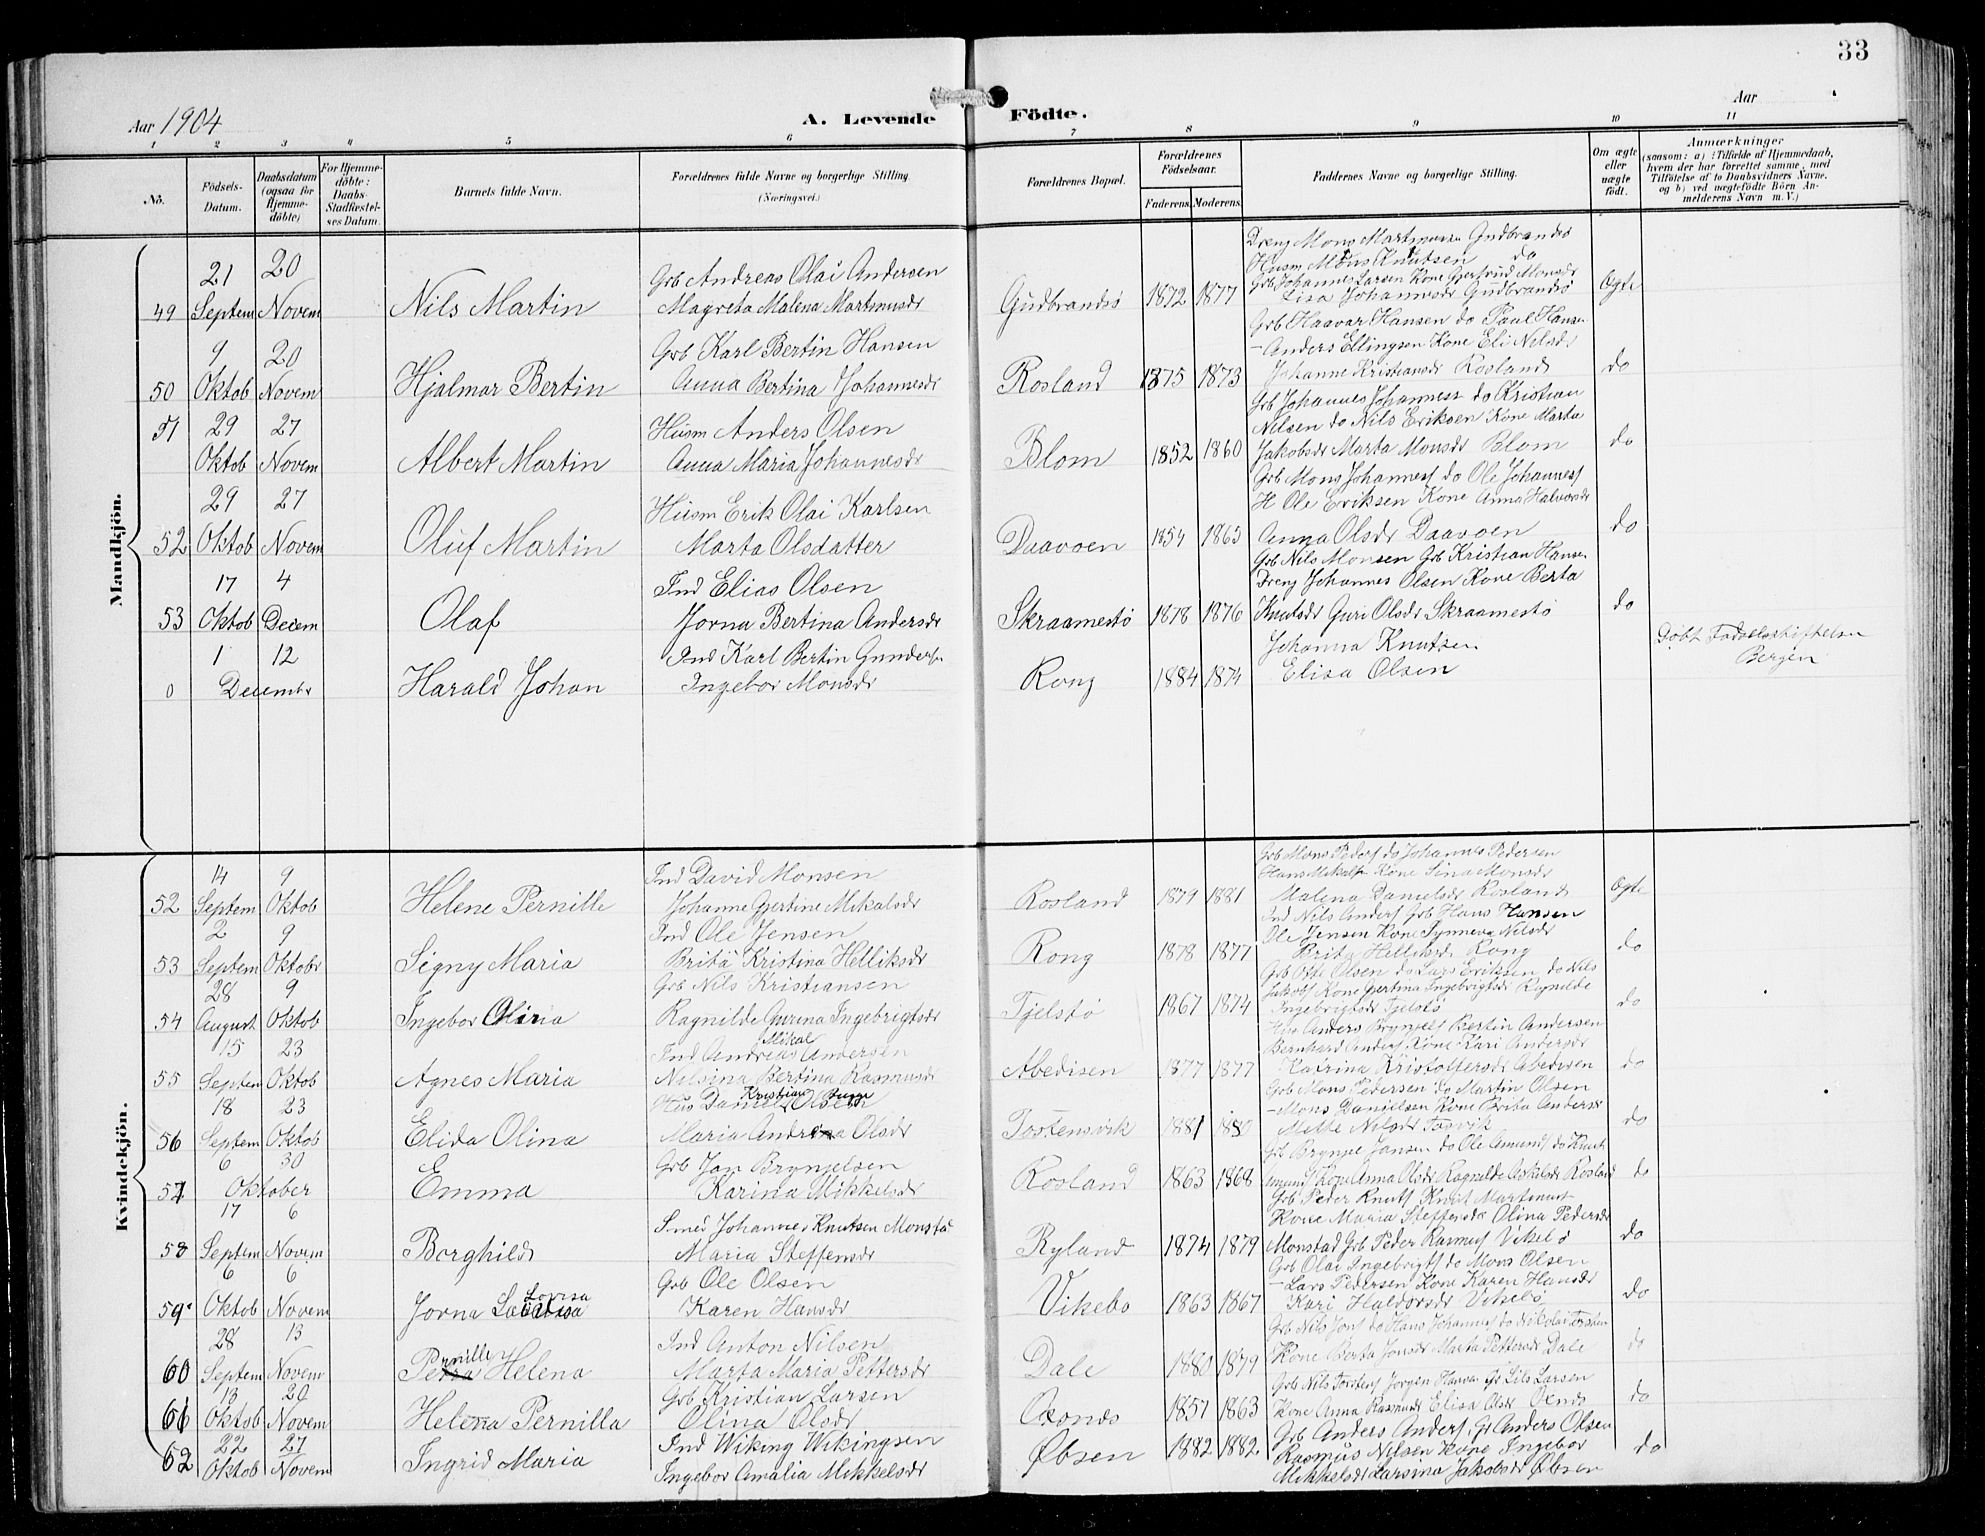 33
Aar 1904
A. Levende Födte.
Aar
1 2 3 4 5 6 7 8 9 10 11
No.
Födsels-Datum.
Daabsdatum (ogsaa for Hjemme-döbte)
For Hjemme-döbte: Daabs Stadfæstel-ses Datum.
Barnets fulde Navn.
Forældrenes fulde Navne og borgerlige Stilling. (Næringsvei.)
Forældrenes Bopæl.
Forældrenes Födselsaar.
Faderens. Moderens.
Faddernes Navne og borgerlige Stilling.
Om ægte eller uægte födt.
Anmærkninger (saasom: a) i Tilfælde af Hjemmedaab, hvem der har forrettet samme, med Tilföielse af to Daabsvidners Navne, og b) ved uægtefödte Börn An-melderens Navn m.V.)
Mandkjön.
49 21 Septem 20 Novem Nils Martin Grb Andreas Olai Andersen
Magreta Malena Martinusdr Gudbrandsö 1872 1877 Ægte
Dreng Mons Martinusen Gudbrandsö
Husm Mons Knutsen do
Grb Johannes Larsen Kone Gjertrud Monsdr
Lisa Johannesdr Gudbrandsö
50 9 Oktob 20 Novem Hjalmar Bertin Grb Karl Bertin Hansen
Anna Bertina Johannesdr Rosland 1875 1873 do
Grb Haavar Hansen do Paul Hansen
- Anders Ellingsen Kone Eli Nilsdr
Johanne Kristiansdr Rosland
51 29 Oktob 27 Novem Albert Martin Husm Anders Olsen
Anna Maria Johannesdr Blom 1852 1860 do
Grb Johannes Johanness do Kristian
Nilsen do Nils Eriksen Kone Marta
Jakobsdr Marta Monsdr Blom
52 29 Oktob 27 Novem Oluf Martin Husm Erik Olai Karlsen
Marta Olsdatter Daavoen 1854 1863 do
Grb Mons Johanness do Ole Johanness
H Ole Eriksen Kone Anna Halvorsdr
Anna Olsdr Daavoen
53 17 Oktob 4 Decem Olaf Ind Elias Olsen
Jorna Bertina Andersdr Skraamestö 1878 1876 do
Grb Nils Monsen Grb Kristian Hansen
Dreng Johannes Olsen Kone Berta
Knutsdr Guri Olsdr Skraamestö
0 1 12 Decembr Harald Johan Ind Karl Bertin Gunders
Ingebor Monsdr Rong 1884 1874
Johanna Knutsen
Elisa Olsen
Döbt Fodselsstiftelsen
Bergen
Kvindekjön.
52 14 Septem 9 Oktob Helene Pernille Ind David Monsen
Johanne Gjertine Mikalsdr Rosland 1879 1881 Ægte
Grb Mons Peders do Johannes Pedersen
Hans Mikals Kone Sina Monsdr
Malena Danielsdr Rosland
53 2 Septem 9 Oktobr Signy Maria Ind Ole Jensen
Brita Kristina Helliksdr Rong 1878 1877 do
Ind Nils Anders Grb Hans Hansen
Ole Jensen Kone Synneva Nilsdr
Brita Helliksdr Rong
54 28 August 9 Oktob Ingebor Oliria Grb Nils Kristiansen
Ragnilde Gurina Ingebrigtsdr Tjelstö 1867 1874 do
Grb Otte Olsen do Lars Eriksen do Nils
Jakobs Kone Gjertina Ingebrigtsdr Rognilde
Ingebrigtsdr Tjelstö
55 15 Septem 23 Oktob Agnes Maria Ind Andreas Mikal Andersen
Nilsina Bertina Rasmusdr Abedisen 1877 1877 do
Hus Anders Brynjels Bertin Andersen
Bernhard Anders Kone Kari Andersdr
Katrina Kristoffersdr Abedisen
56 18 Septem 23 Oktob Elida Olina Hus Daniel Kristian Olsen
Maria Andrea Olsdr Tostensvik 1881 1880 do
Grb Mons Pedersen do Martin Olsen
- Mons Danielsen Kone Brita Andersdr
Mette Nilsdr
57 6 30 Oktober Emma Grb Jan Brynjelsen
Karina Mikkelsdr Rosland 1863 1868 do
Grb Brynjel Jansen do Ole Amunds do Knut
Amunds Kone Anna Olsdr Ragnilde Askelsdr Rosland
58 17 Septem 6 Novem Borghild Smed Johannes Knutsen Monstad
Maria Steffensdr Ryland 1874 1879 do
Grb Peder Knuts Knut Martinus
Kone Maria Steffensdr Olina Pedersdr
Monstad Grb Peder Rasmus Vikebö
59 6 Oktob 6 Novem Jorna Lovisa Grb Ole Olsen
Karen Hansdr Vikebo 1863 1867 do
Grb Olai Ingebrigts do Mons Olsen
- Lars Pedersen Kone Karen Hansdr
Kari Haldorsdr Vikebö
60 28 Septem 13 Novem Pernille Helena Ind Anton Nilsen
Marta Maria Pettersdr Dale 1880 1879 do
Grb Nils Jons do Hans Johannes do Nikolai
Kone Berta Jonsdr Marta Pettersdr Dale
61 13 Oktob 20 Novem Helena Pernilla Grb Kristian Larsen
Olina Olsdr 1857 1863 do
Grb Nils Torsters Jorgen Hansen Nils Larsen
Kone Anna Rasmusdr Elisa Olsdr
62 22 Oktob 27 Novem Ingrid Maria Ind Wiking Wikingsen
Ingebor Amalia Mikkelsdr Øbsen 1882 1882 do
Grb Anders Anders Gr Anders Olsen
Rasmus Nilsen Kone Ingebor
Mikkelsdr Larsina Jakobsdr Øbsen